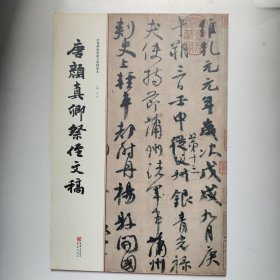 唐顏真卿祭侄文稿
維乾元元年歲次戊戌九月庚
午朔三日壬申第十三叔銀青光祿
夫使持節蒲州諸軍事蒲州
刺史上輕車都尉丹楊縣開國